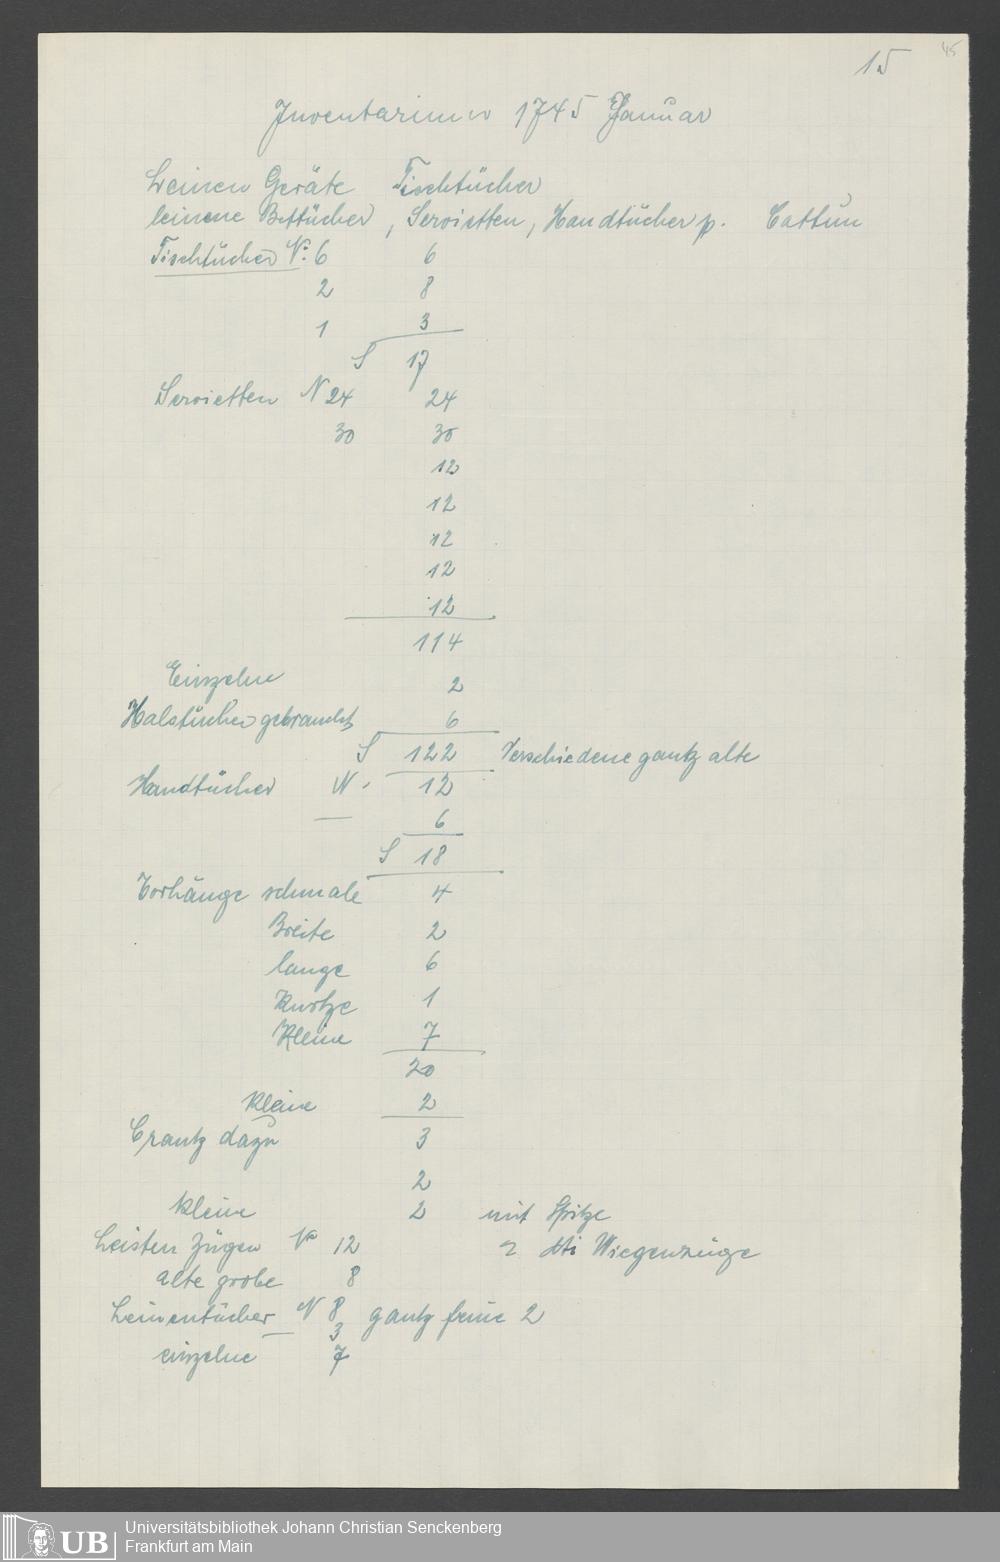 45
15
Inventarium 1745 Januar
Leinen Geräte Tischtücher
leinene Bettücher, Servietten, Handtücher p. Cattun
Tischtücher No. 6 6
2 8
1 3
S 17
Servietten N 24 24
30 30
12
12
12
12
12
114
Einzelne 2
Halstücher gebraucht 6
S 122 Verschiedene gantz alte
Handtücher N - 12
6
S 18
Vorhänge schmale 4
Breite 2
lange 6
Kurtze 1
Kleine 7
20
Kleine 2
Crantz dazu 3
2
Kleine 2 mit Spitze
Leisten Zügen No 12 2 dti Wiegenzüge
alte grobe 8
Leinentücher N 8 gantz feine 2
3
einzelne 7
UB
Universitätsbibliothek Johann Christian Senckenberg
Frankfurt am Main